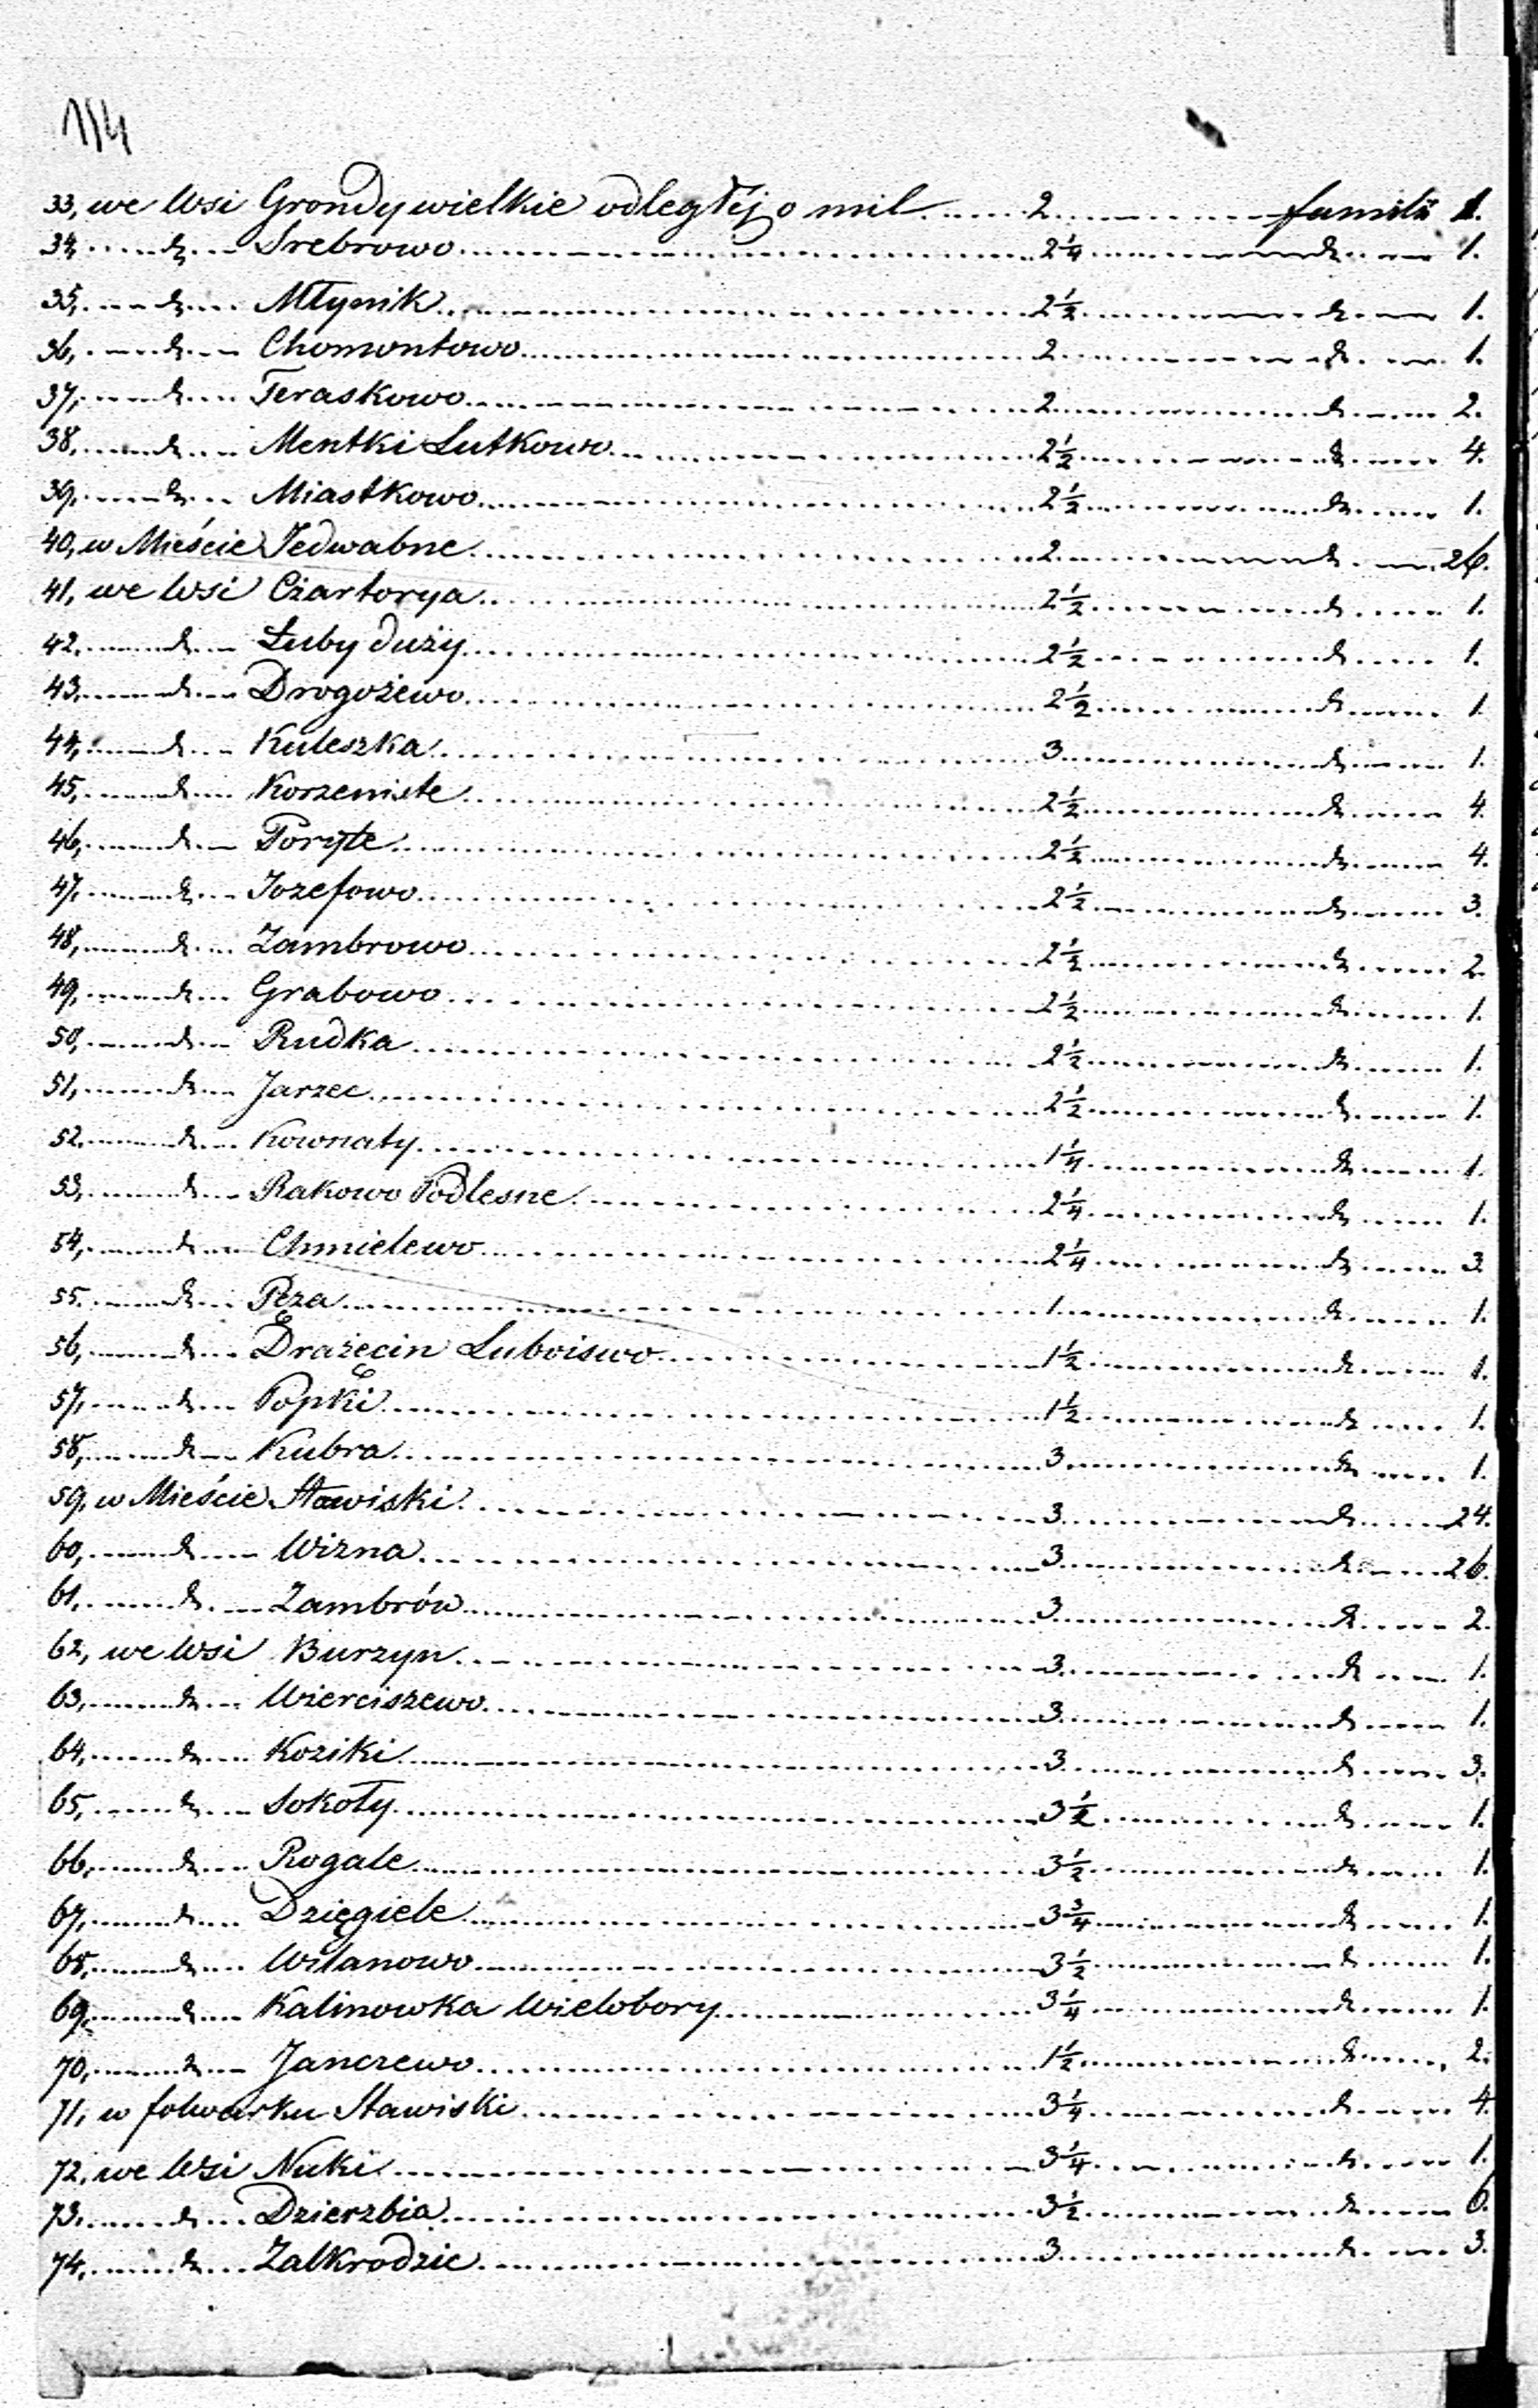 114
33, we Wsi Grondy wielkie odległéj o mil ...... 2 ............ familii 1.
34, ..... d° ... Srebrowo ............ 2 1/4 ............ d° ..... 1.
35, ..... d° ... Młynik ............ 2 1/2 ............ d° ..... 1.
36, ..... d° ... Chomontowo ............ 2 ............ d° ..... 1.
37, ..... d° ... Taraskowo ............ 2 ............ d° ..... 2.
38, ..... d° ... Mentki Lutkowo ............ 2 1/2 ............ d° ..... 4.
39, ..... d° ... Miastkowo ............ 2 1/2 ............ d° ..... 1.
40, w Mieście Jedwabne ............ 2 ............ d° ..... 26.
41, we Wsi Czartorya ............ 2 1/2 ............ d° ..... 1.
42, ..... d° ... Łuby duży ............ 2 1/2 ............ d° ..... 1.
43, ..... d° ... Drogożewo ............ 2 1/2 ............ d° ..... 1.
44, ..... d° ... Kuleszka ............ 3 ............ d° ..... 1.
45, ..... d° ... Korzeniste ............ 2 1/2 ............ d° ..... 4.
46, ..... d° ... Poryte ............ 2 1/2 ............ d° ..... 4.
47, ..... d° ... Jozefowo ............ 2 1/2 ............ d° ..... 3.
48, ..... d° ... Zambrowo ............ 2 1/2 ............ d° ..... 2.
49, ..... d° ... Grabowo ............ 2 1/2 ............ d° ..... 1.
50, ..... d° ... Rudka ............ 2 1/2 ............ d° ..... 1.
51, ..... d° ... Jarzec ............ 2 1/2 ............ d° ..... 1.
52, ..... d° ... Kownaty ............ 1 1/4 ............ d° ..... 1.
53, ..... d° ... Rakowo Podlesne ............ 2 1/4 ............ d° ..... 1.
54, ..... d° ... Chmielewo ............ 2 1/4 ............ d° ..... 3.
55, ..... d° ... Pęza ............ 1 ............ d° ..... 1.
56, ..... d° ... Drażęcin Luboiswo ............ 1 1/2 ............ d° ..... 1.
57, ..... d° ... Popki ............ 1 1/2 ............ d° ..... 1.
58, ..... d° ... Kubra ............ 3 ............ d° ..... 1.
59, w Mieście Stawiski ............ 3 ............ d° ..... 24.
60, ..... d° ... Wizna ............ 3 ............ d° ..... 26.
61, ..... d° ... Zambrów ............ 3 ............ d° ..... 2.
62, we Wsi Burzyn ............ 3 ............ d° ..... 1.
63, ..... d° ... Wierciszewo ............ 3 ............ d° ..... 1.
64, ..... d° ... Koziki ............ 3 ............ d° ..... 3.
65, ..... d° ... Sokoły ............ 3 1/2 ............ d° ..... 1.
66, ..... d° ... Rogale ............ 3 1/2 ............ d° ..... 1.
67, ..... d° ... Dzięgiele ............ 3 3/4 ............ d° ..... 1.
68, ..... d° ... Wilanowo ............ 3 1/2 ............ d° ..... 1.
69, ..... d° ... Kalinowka Wielobory ............ 3 1/4 ............ d° ..... 1.
70, ..... d° ... Janczewo ............ 1 1/2 ............ d° ..... 2.
71, w folwarku Stawiski ............ 3 1/4 ............ d° ..... 4.
72, we Wsi Nuki ............ 3 1/4 ............ d° ..... 1.
73, ..... d° ... Dzierzbia ............ 3 1/2 ............ d° ..... 6.
74, ..... d° ... Zalkrodzie ............ 3 ............ d° ..... 3.